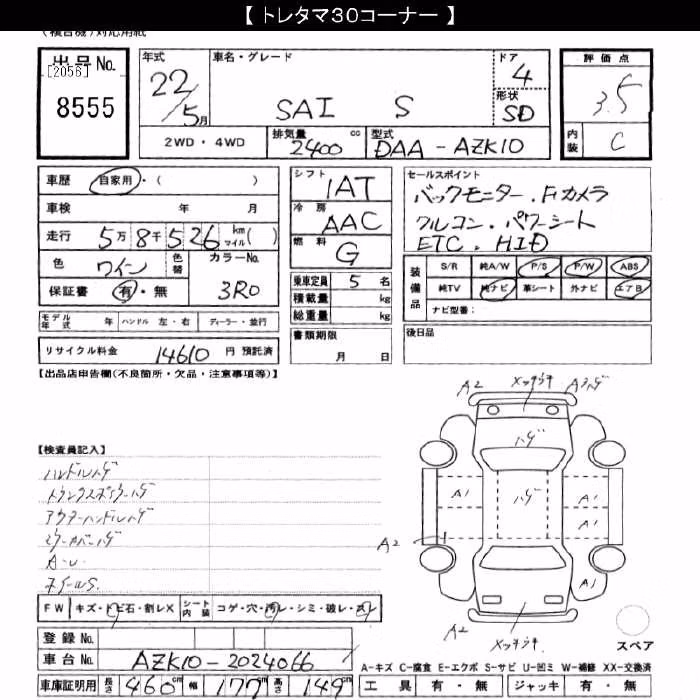 【 トレタマ30コーナー 】
(複合機)対応用紙
出品No.
[2056]
8555
年式
22/5月
車名・グレード
SAI S
ドア
4
形状
SD
評価点
3.5
内装
C
2WD・4WD
排気量
2400 cc
型式
DAA-AZK10
車歴 自家用・( )
車検 年 月
走行 5万8千526 km マイル( )
色 ワイン
色替
カラーNo.
3R0
保証書 有・無
モデル年式 年 ハンドル 左・右 ディーラー・並行
リサイクル料金 14610 円 預託済
シフト
IAT
冷房
AAC
燃料
G
乗車定員 5 名
積載量 kg
総重量 kg
書類期限
月 日
セールスポイント
バックモニター.Fカメラ
クルコン.パワーシート
ETC.HID
装備品
S/R 純A/W P/S P/W ABS
純TV 純ナビ 革シート 外ナビ エアB
ナビ型番:
後日品
【出品店申告欄(不良箇所・欠品・注意事項等)】
【検査員記入】
ハンドルハゲ
トランクスポイラーハゲ
アウターハンドルハゲ
ミラーカバーハゲ
A-U.
ホイールS.
A2
メッチジキ
A3ハゲ
ハゲ
A1
ハゲ
A1
A1
A2
A1
A2
メッチジキ
スペア
FW キズ・トビ石・割レX シート内装 コゲ・穴・汚レ・シミ・破レ・スレ
登録No.
車台No. AZK10-2024066
車庫証明用 長さ 460cm 幅 177cm 高さ 149cm
A-キズ C-腐食 E-エクボ S-サビ U-凹ミ W-補修 XX-交換済
工具 有・無 ジャッキ 有・無